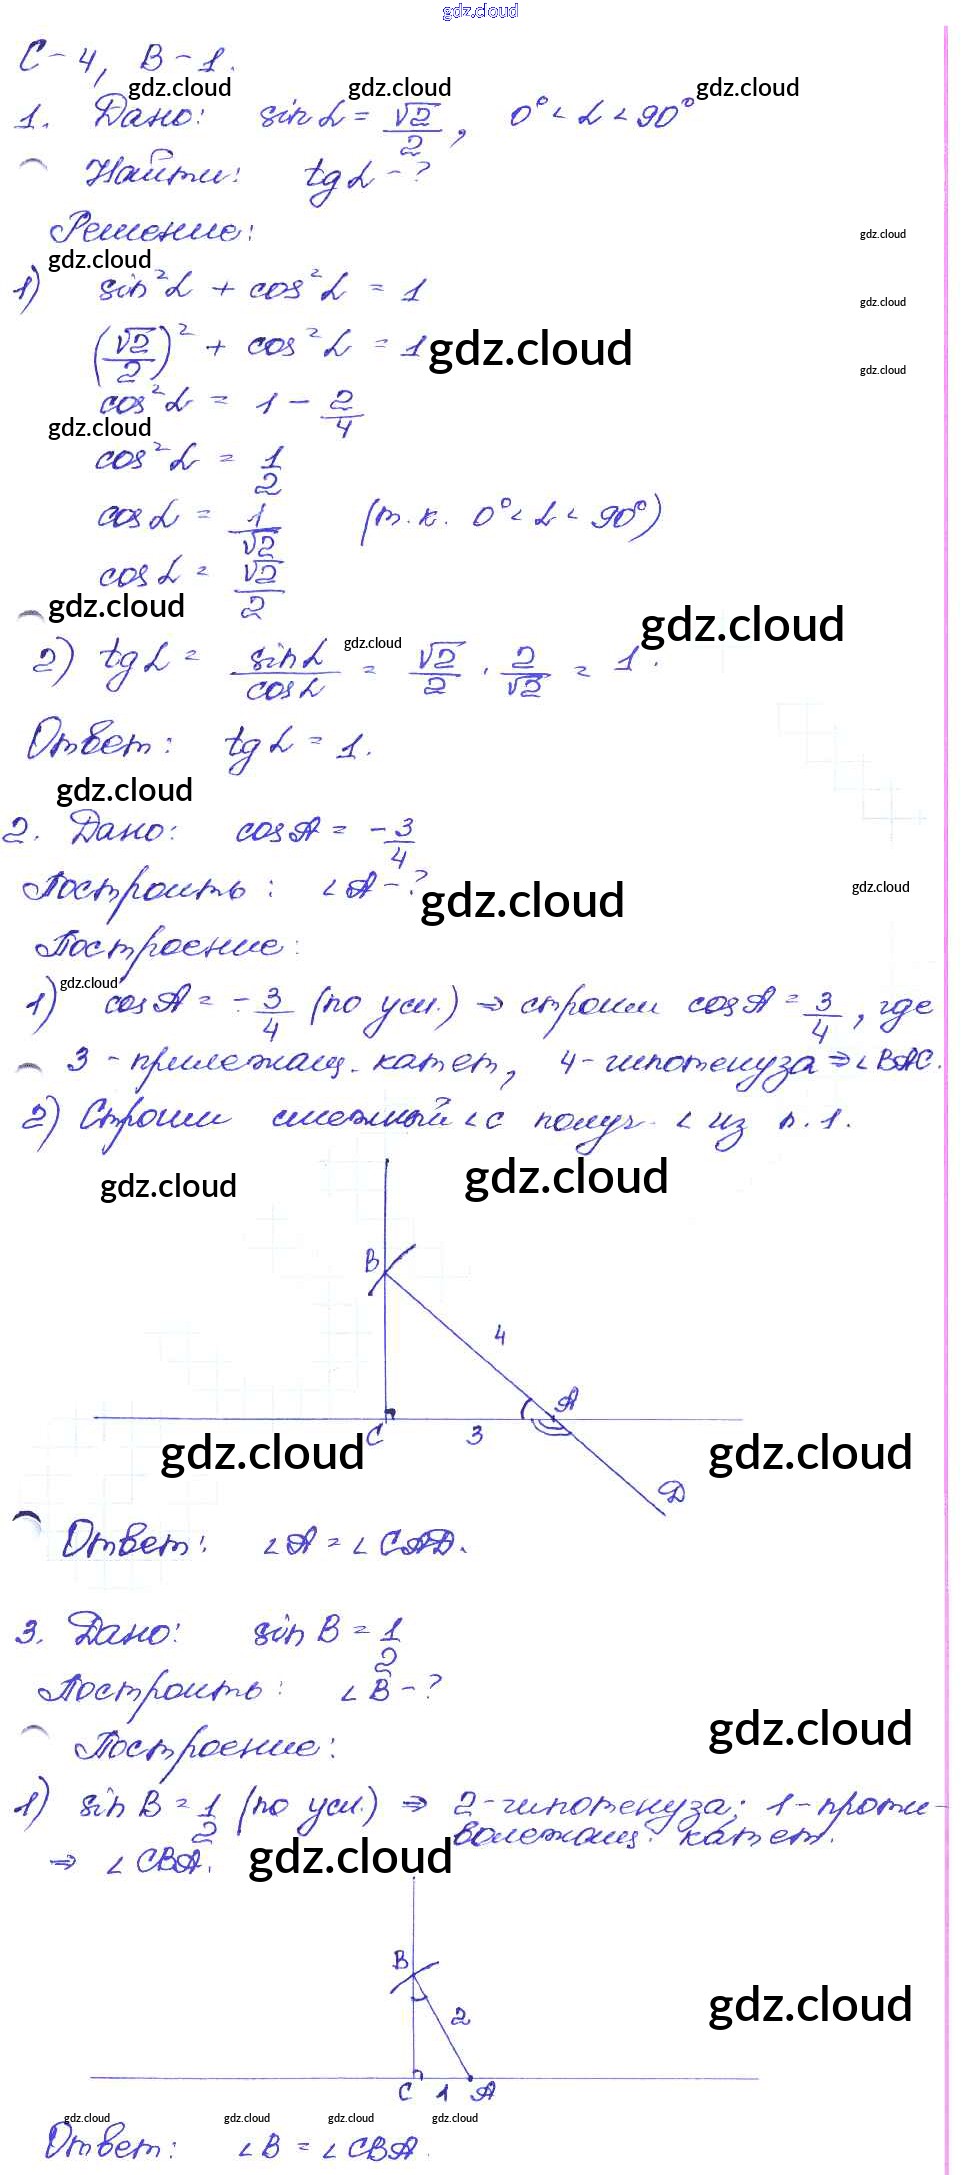 gdz.cloud
С-4, В-1.
gdz.cloud gdz.cloud gdz.cloud
1. Дано: sin α = √2/2, 0° < α < 90°
Найти: tg α - ?
Решение:
gdz.cloud
gdz.cloud
1) sin²α + cos²α = 1
gdz.cloud
(√2/2)² + cos²α = 1
gdz.cloud
gdz.cloud
cos²α = 1 - 2/4
gdz.cloud
cos²α = 1/2
cos α = 1/√2 (т.к. 0° < α < 90°)
cos α = √2/2
gdz.cloud
gdz.cloud
gdz.cloud
2) tg α = sin α/cos α = √2/2 · 2/√2 = 1.
Ответ: tg α = 1.
gdz.cloud
2. Дано: cos A = -3/4
Построить: ∠A - ?
gdz.cloud
gdz.cloud
Построение:
gdz.cloud
1) cos A = -3/4 (по усл.) ⇒ строим cos A = 3/4, где
3 - прилежащ. катет, 4 - гипотенуза ⇒ ∠BAC.
2) Строим смежный ∠ с получ. ∠ из п. 1.
gdz.cloud gdz.cloud
B
4
A
C 3
gdz.cloud gdz.cloud
D
Ответ: ∠A = ∠CAD.
3. Дано: sin B = 1/2
Построить: ∠B - ?
gdz.cloud
Построение:
1) sin B = 1/2 (по усл.) ⇒ 2 - гипотенуза; 1 - проти-
волежащ. катет.
⇒ ∠CBA.
gdz.cloud
B
2
gdz.cloud
C 1 A
gdz.cloud gdz.cloud gdz.cloud gdz.cloud
Ответ: ∠B = ∠CBA.